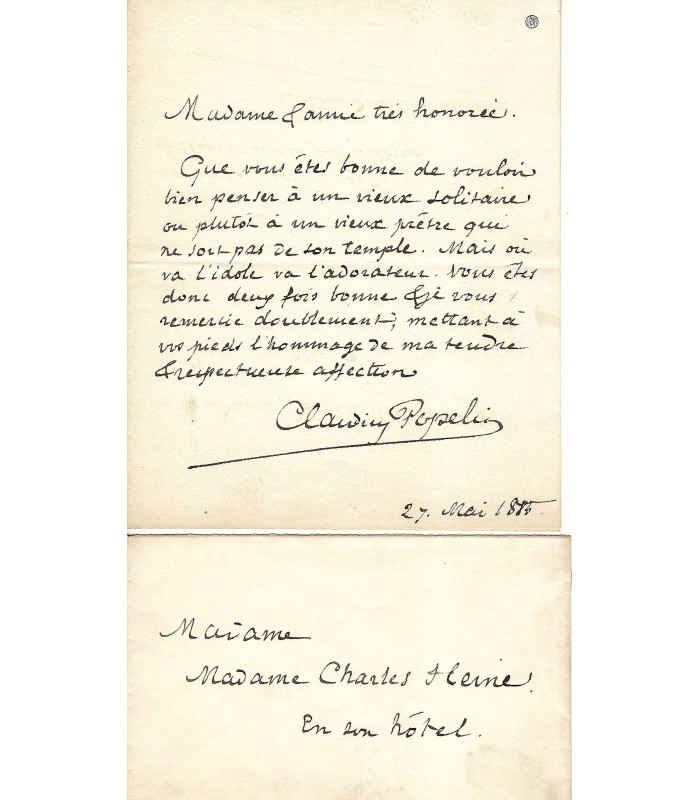 Madame & amie très honorée.
Que vous êtes bonne de vouloir
bien penser à un vieux solitaire
ou plutôt à un vieux prêtre qui
ne sort pas de son temple. Mais où
va l'idole va l'adorateur. Vous êtes
donc deux fois bonne & je vous
remercie doublement, mettant à
vos pieds l'hommage de ma tendre
& respectueuse affection
Claudius Popelin
27. Mai 1885.
Madame
Madame Charles Heine.
En son hôtel.